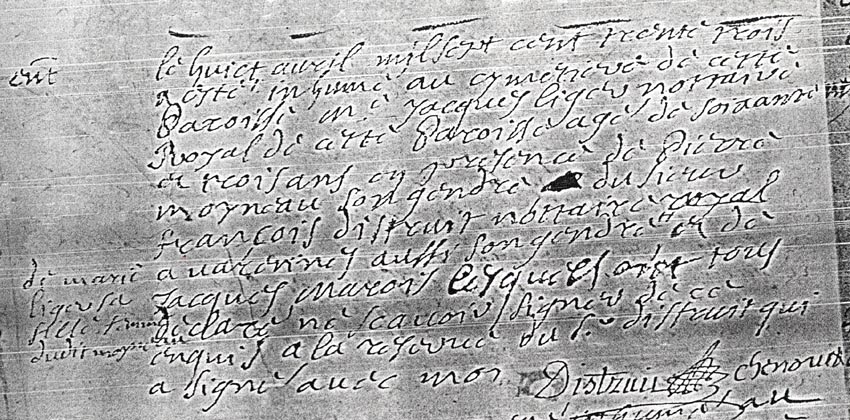 ent
le huict avril mil sept cent trente trois
a esté inhumé au cymetiere de cette
Paroisse me Jacques liger nottaire
Royal de cette Paroisse agé de soixante
et trois ans en presence de Pierre
moyneau son gendre du sieur
francois distruit nottaire royal
a varennes aussi son gendre et de
Jacques marois lesquels ont tous
declaré ne scavoir signer de ce
enquis a la reserve du Sr distruit qui
a signé avec moy
de marie
liger sa
fille femme
dudit moyneau
Distruit
chenou